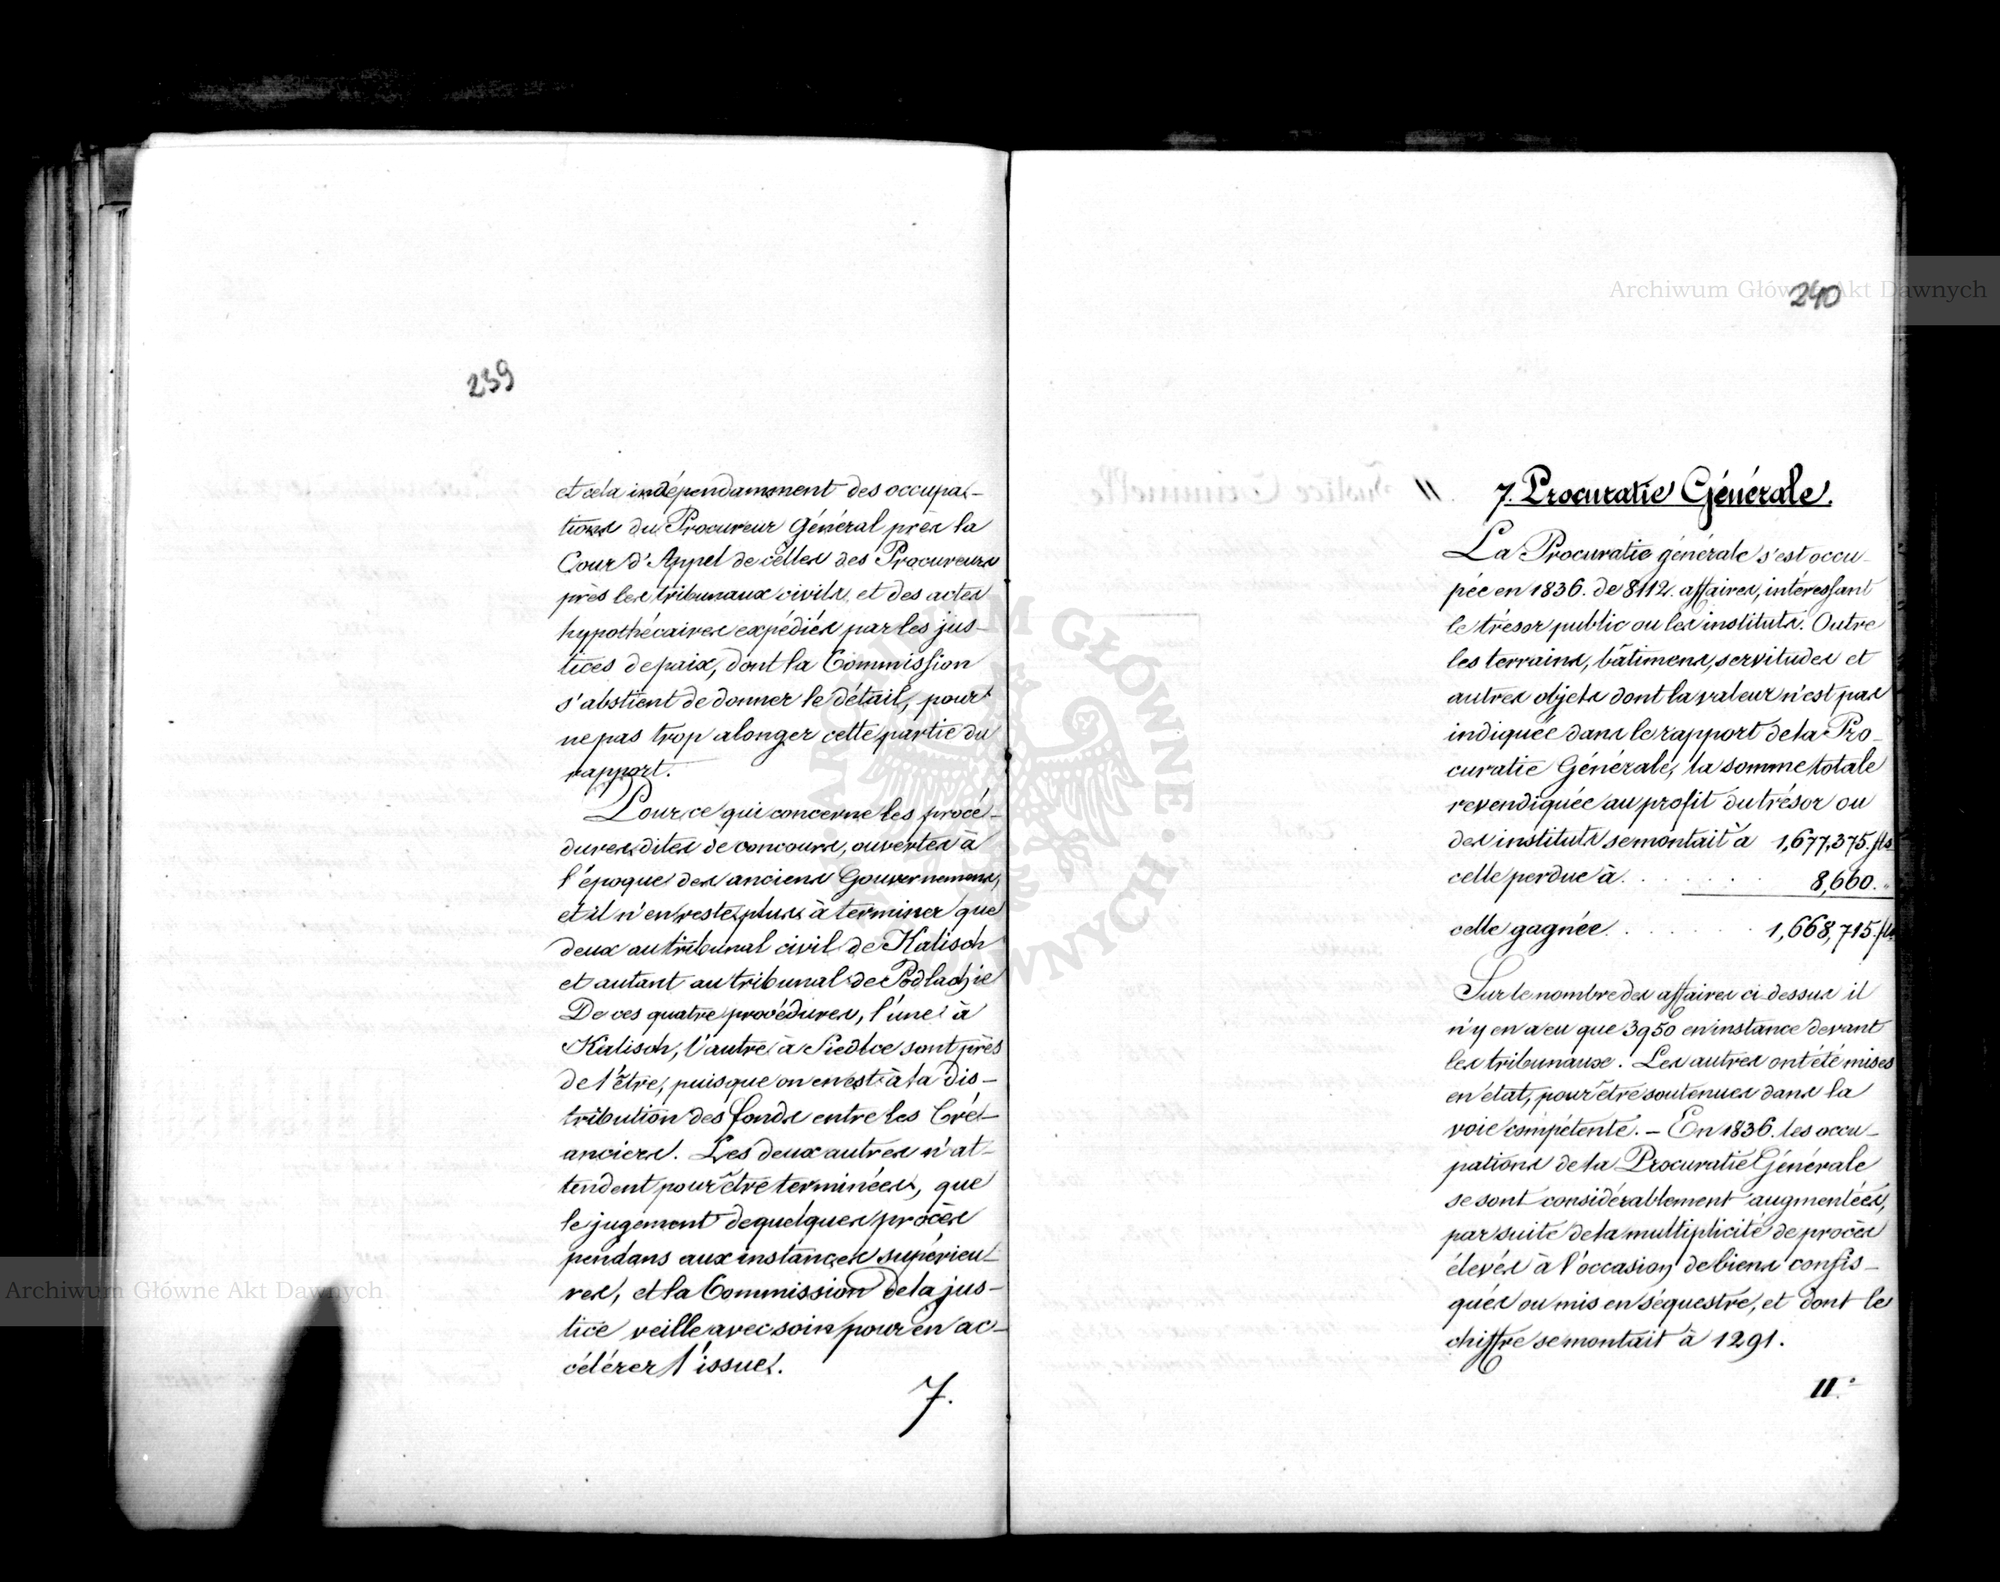 239
et cela indépendamment des occupa-
tions du Procureur Général près la
Cour d'Appel de celles des Procureurs
près les tribunaux civils, et des actes
hypothécaires expédiés par les jus-
tices de paix, dont la Commission
s'abstient de donner le détail, pour
ne pas trop alonger cette partie du
rapport.
Pour ce qui concerne les procé-
dures dites de concours, ouvertes à
l'époque des anciens Gouvernemens,
et il n'en reste plus à terminer que
deux au tribunal civil de Kalisch
et autant au tribunal de Podlachie
De ces quatre procédures, l'une à
Kalisch, l'autre à Siedlce sont près
de l'être, puisque on en est à la dis-
tribution des fonds entre les Cré-
anciers. Les deux autres n'at-
tendent pour être terminées, que
le jugement de quelques procès
pendans aux instances supérieu-
res, et la Commission de la jus-
tice veille avec soin pour en ac-
célérer l'issue.
7.
240
7. Procuratie Générale.
La Procuratie générale s'est occu-
pée en 1836. de 8112. affaires, intéressant
le trésor public ou les instituts. Outre
les terrains, bâtimens, servitudes et
autres objets dont la valeur n'est pas
indiquée dans le rapport de la Pro-
curatie Générale, la somme totale
revendiquée au profit du trésor ou
des instituts se montait à 1,677,375. fls
celle perdue à . . . . . 8,660. "
celle gagnée . . . . . . 1,668,715. fls
Sur le nombre des affaires ci dessus il
n'y en a eu que 3950 en instance devant
les tribunaux. Les autres ont été mises
en état, pour être soutenues dans la
voie compétente. – En 1836. les occu-
pations de la Procuratie Générale
se sont considérablement augmentées,
par suite de la multiplicité de procès
élevés à l'occasion de biens confis-
qués ou mis en séquestre, et dont le
chiffre se montait à 1291.
II.
Archiwum Główne Akt Dawnych
Archiwum Główne Akt Dawnych
ARCHIWUM GŁÓWNE AKT DAWNYCH